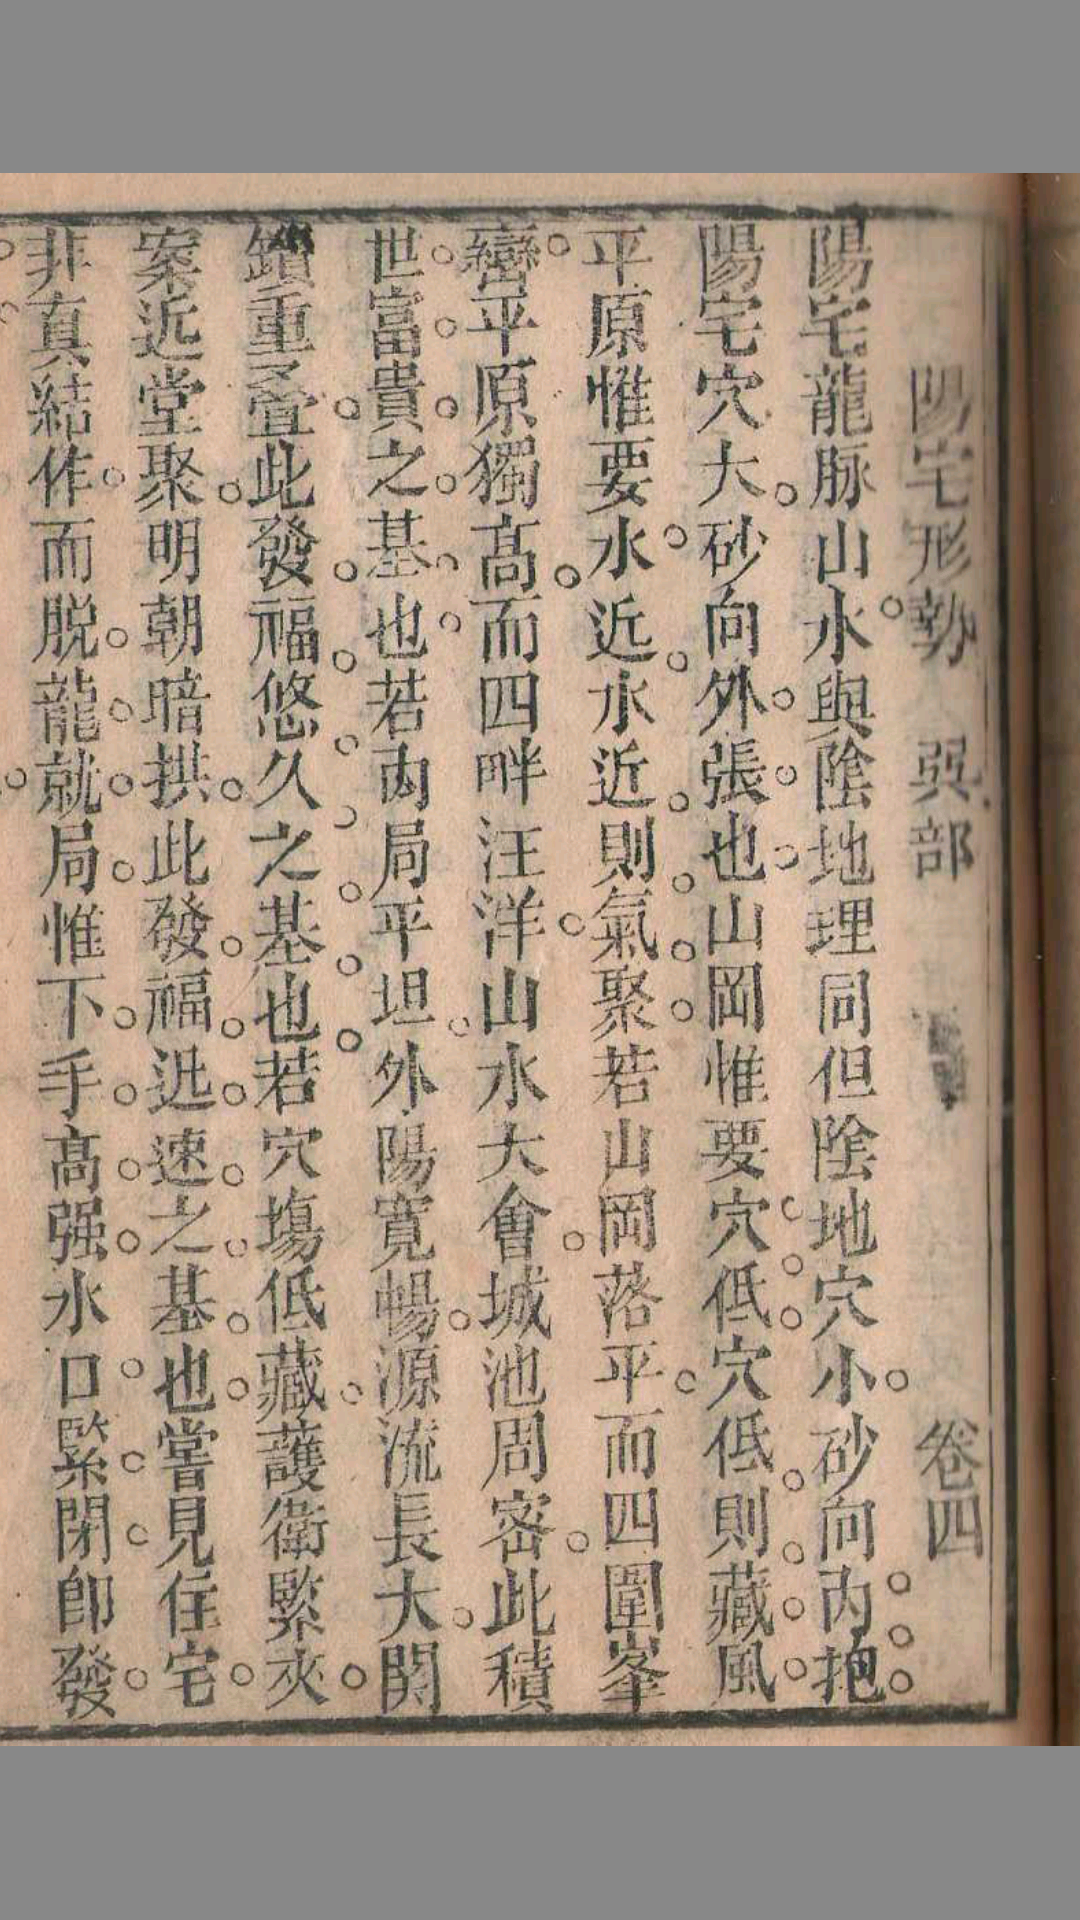 陽宅形勢 巺部 卷四
陽宅龍脉山水與陰地理同但陰地穴小砂向內抱
陽宅穴大砂向外張也山岡惟要穴低穴低則藏風
平原惟要水近水近則氣聚若山岡落平而四圍峯
巒平原獨高而四畔汪洋山水大會城池周密此積
世富貴之基也若內局平坦外陽寛暢源流長大関
鎖重叠此發福悠久之基也若穴塲低藏護衛緊夾
案近堂聚明朝暗拱此發福迅速之基也嘗見住宅
非真結作而脱龍就局惟下手高强水口緊閉即發